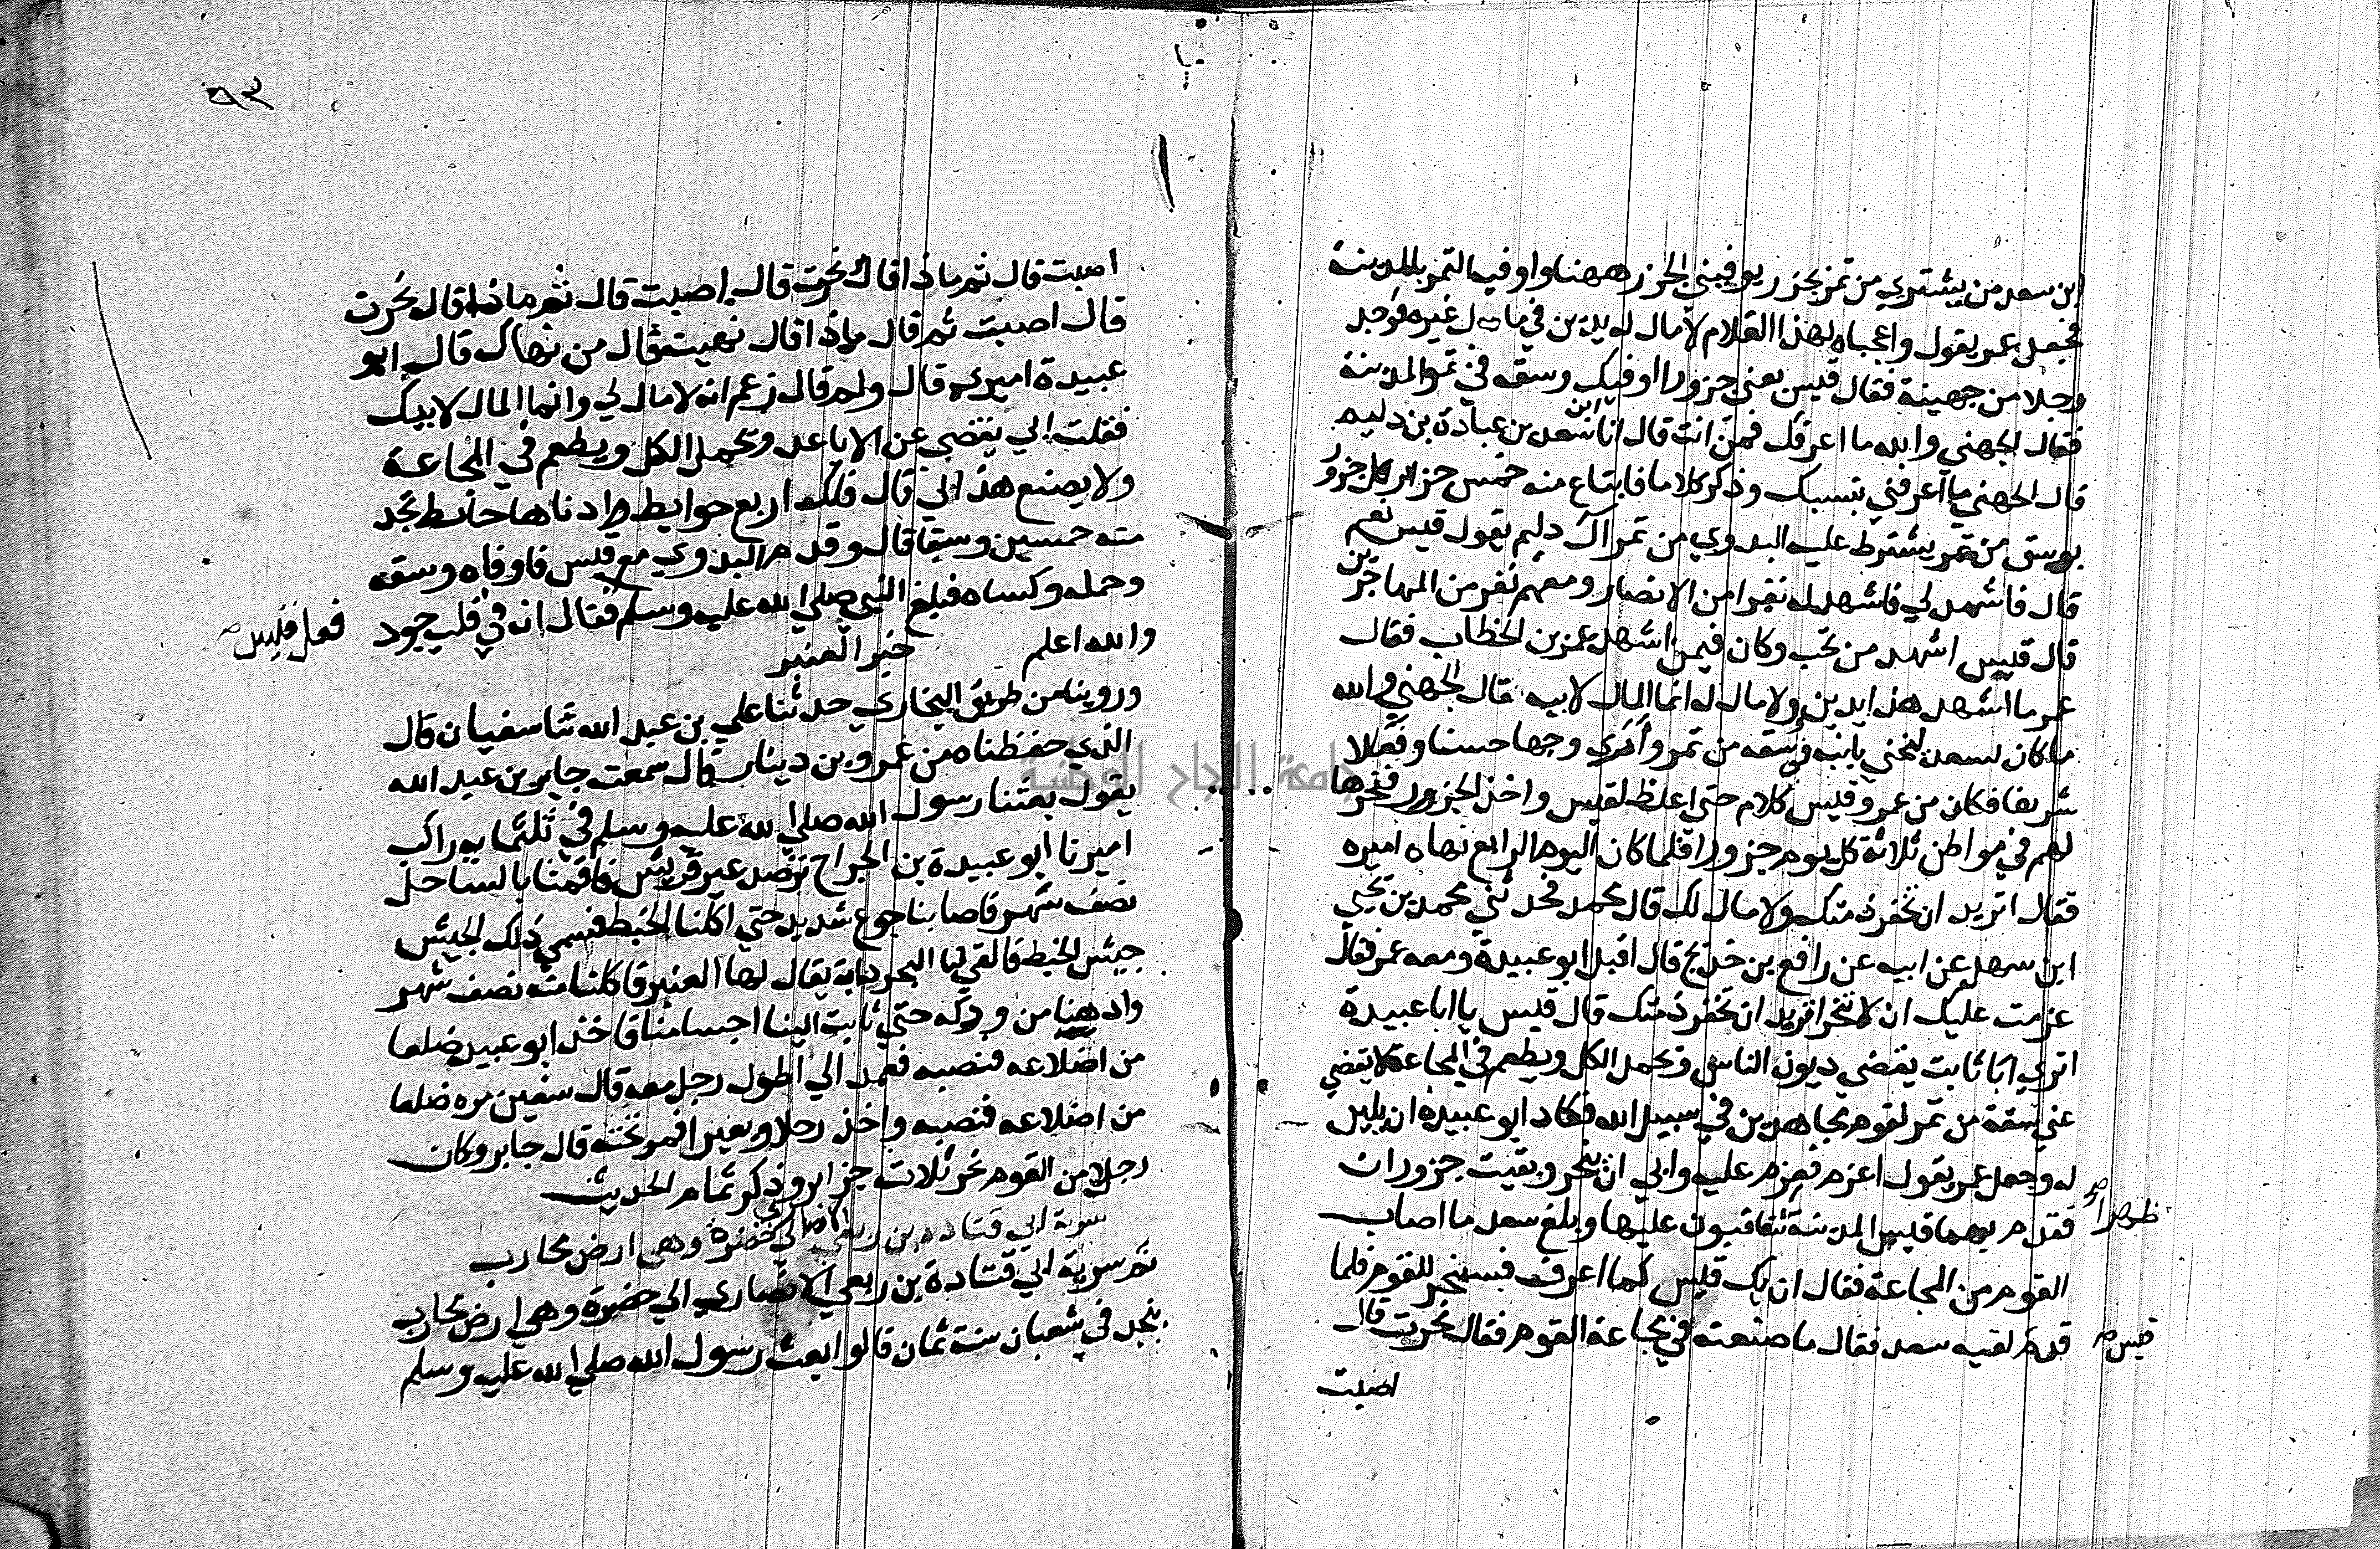 ابن سعد من يشتري مني تمر بجزر يوفيني الجزر ههنا واوفيه التمر بالمدينة
فجعل عمر يقول واعجباه لهذا الغلام لا مال له يدين في مال غيره فوجد
رجلا من جهينة فقال قيس بعني جزورا اوفيك وسقه في تمر المدينة
فقال الجهني والله ما اعرفك فمن انت قال انا ابن سعد بن عبادة بن دليم
قال الجهني ما اعرفني بنسبك وذكر كلاما فابتاع منه خمس جزائر كل جزور
بوسق من تمر يشترط عليه البدوي من تمر اك دليم يقول قيس نعم
قال فاشهد لي فاشهد له نفرا من الانصار ومعهم نفر من المهاجرين
قال قيس اشهد من تحب وكان فيمن اشهد عمر بن الخطاب فقال
عمر ما اشهد هذا يدين ولا مال له انما المال لابيه قال الجهني والله
ما كان سعد ليخني بابنه في سقه من تمر وأري وجها حسنا وفعالا
شريفا فكان من عمر وقيس كلام حتى اغلظ لقيس واخذ الجزور فنحرها
لهم في مواطن ثلاثة كل يوم جزورا فلما كان اليوم الرابع نهاه اميره
فقال اتريد ان تخفر ذمتك ولا مال لك قال محمد فحدثني محمد بن يحيي
ابن سهل عن ابيه عن رافع بن خديج قال اقبل ابو عبيدة ومعه عمر فقال
عزمت عليك ان لا تنحر اتريد ان تخفر ذمتك قال قيس يا ابا عبيدة
اتري ابا ثابت يقضي ديون الناس وتحمل الكل ويطعم في المجاعة لا يقضي
عني سقة من تمر لقوم مجاهدين في سبيل الله فكاد ابو عبيدة ان يلين
له وجعل عمر يقول اعزم فعزم عليه وابي ان ينحر وبقيت جزوران
فقدم بهما قيس المدينة ظهرا يتعاقبون عليها وبلغ سعد ما اصاب
القوم من المجاعة فقال ان يك قيس كما اعرف فسينحر للقوم فلما
قدم قيس لقيه سعد فقال ما صنعت في مجاعة القوم فقال نحرت قال
اصبت
٩٣
اصبت قال ثم ماذا قال نحرت قال اصبت قال ثم ماذا قال نحرت
قال اصبت ثم قال ماذا قال نهيت قال من نهاك قال ابو
عبيدة اميري قال ولم قال زعم انه لا مال لي وانما المال لابيك
فقلت ابي يقضي عن الاباعد وتحمل الكل ويطعم في المجاعة
ولا يصنع هذا لي قال فلك اربع حوايط ادناها حائط تجد
منه خمسين وسقا قال وقدم البدوي مع قيس فاوفاه وسقه
وحمله وكساه فبلغ النبي صلي الله عليه وسلم فعل قيس فقال انه في قلب جود
والله اعلم خبر العنبر
وروينا من طريق البخاري حدثنا علي بن عبد الله ثنا سفيان قال
الذي حفظناه من عمرو بن دينار قال سمعت جابر بن عبد الله
يقول بعثنا رسول الله صلي الله عليه وسلم في ثلثمايه راكب
اميرنا ابو عبيدة بن الجراح نرصد عير قريش فاقمنا بالساحل
نصف شهر فاصابنا جوع شديد حتي اكلنا الخبط فسمي ذلك الجيش
جيش الخبط فالقي لنا البحر دابة يقال لها العنبر فاكلنا منه نصف شهر
وادهنا من ودكه حتي ثابت الينا اجسامنا فاخذ ابو عبيدة ضلعا
من اضلاعه فنصبه فعمد الي اطول رجل معه قال سفين مره ضلعا
من اضلاعه فنصبه واخذ رحلا وبعيرا فمر تحته قال جابر وكان
رجل من القوم نحر ثلاث جزاير وذكر تمام الحديث
سرية ابي قتادة بن ربعي الانصاري الي خضرة وهي ارض محارب
ثم سرية ابي قتادة بن ربعي الانصاري الي خضرة وهي ارض محارب
بنجد في شعبان سنة ثمان قالوا بعث رسول الله صلي الله عليه وسلم
جامعة النجاح الوطنية